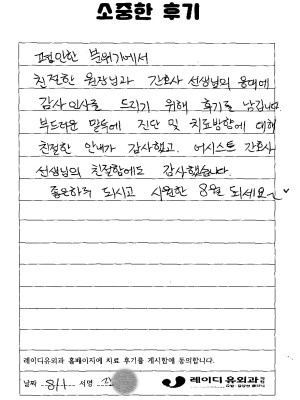 소중한 후기
편안한 분위기에서
친절한 원장님과 간호사 선생님의 응대에
감사인사를 드리기 위해 후기를 남깁니다.
부드러운 말투에 진단 및 치료방향에 대해
친절한 안내가 감사했고. 어시스트 간호사
선생님의 친절함에도 감사했습니다.
좋은하루 되시고 시원한 8월 되세요~
레이디유외과 홈페이지에 치료 후기를 게시함에 동의합니다.
날짜 8/1 서명
레이디 유외과